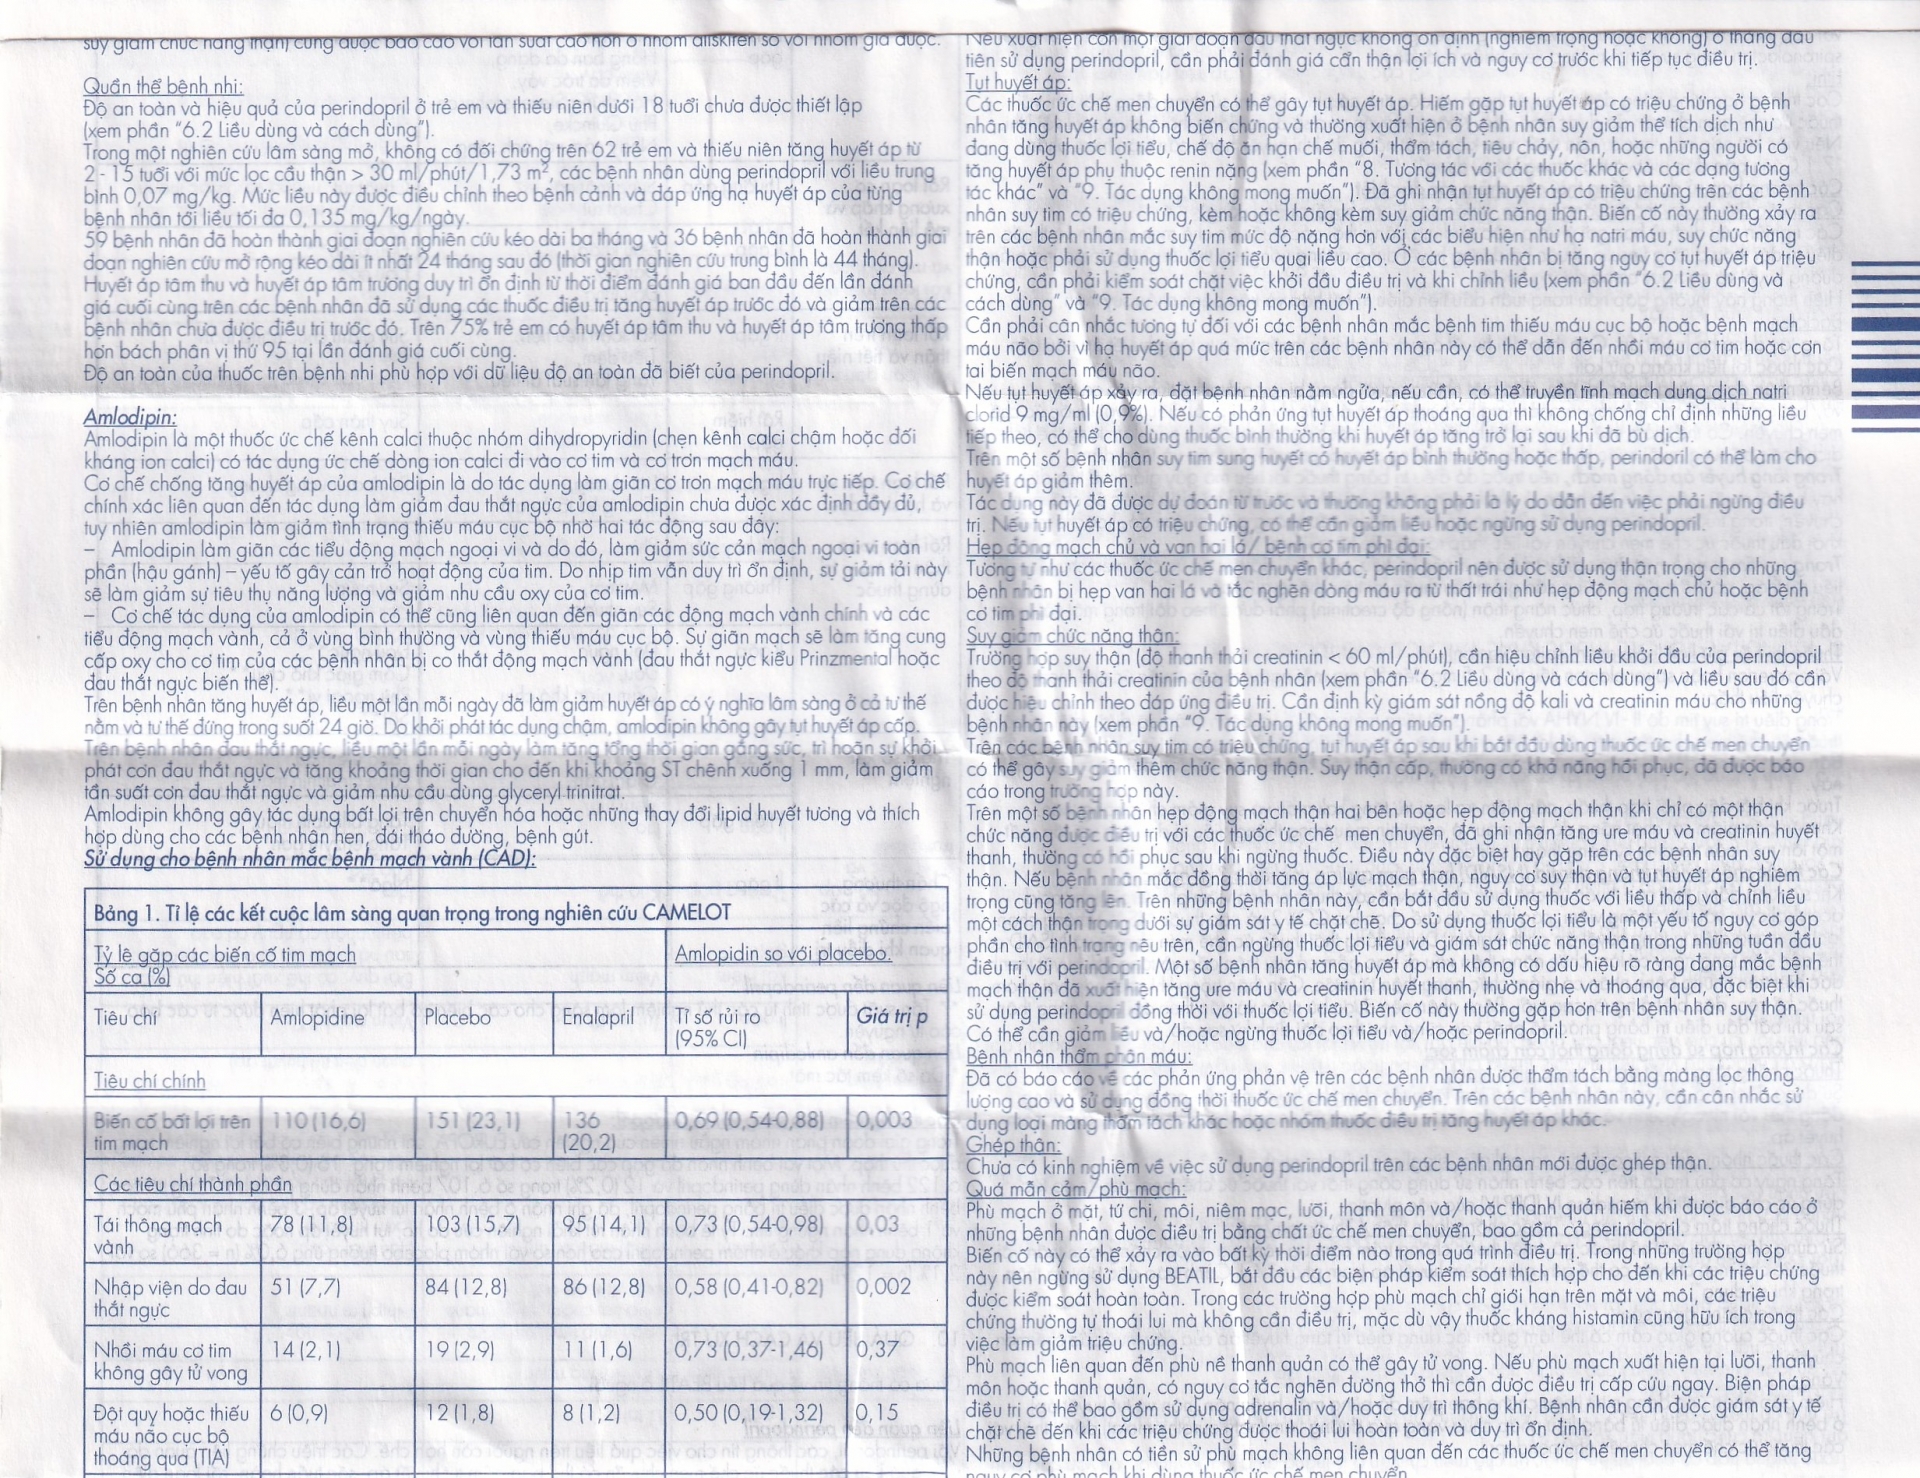 suy giảm chức năng thận) cũng được báo cáo với tần suất cao hơn ở nhóm aliskiren so với nhóm giả dược.
Quần thể bệnh nhi:
Độ an toàn và hiệu quả của perindopril ở trẻ em và thiếu niên dưới 18 tuổi chưa được thiết lập
(xem phần “6.2 Liều dùng và cách dùng”).
Trong một nghiên cứu lâm sàng mở, không có đối chứng trên 62 trẻ em và thiếu niên tăng huyết áp từ
2 - 15 tuổi với mức lọc cầu thận > 30 ml/phút/1,73 m², các bệnh nhân dùng perindopril với liều trung
bình 0,07 mg/kg. Mức liều này được điều chỉnh theo bệnh cảnh và đáp ứng hạ huyết áp của từng
bệnh nhân tới liều tối đa 0,135 mg/kg/ngày.
59 bệnh nhân đã hoàn thành giai đoạn nghiên cứu kéo dài ba tháng và 36 bệnh nhân đã hoàn thành giai
đoạn nghiên cứu mở rộng kéo dài ít nhất 24 tháng sau đó (thời gian nghiên cứu trung bình là 44 tháng).
Huyết áp tâm thu và huyết áp tâm trương duy trì ổn định từ thời điểm đánh giá ban đầu đến lần đánh
giá cuối cùng trên các bệnh nhân đã sử dụng các thuốc điều trị tăng huyết áp trước đó và giảm trên các
bệnh nhân chưa được điều trị trước đó. Trên 75% trẻ em có huyết áp tâm thu và huyết áp tâm trương thấp
hơn bách phân vị thứ 95 tại lần đánh giá cuối cùng.
Độ an toàn của thuốc trên bệnh nhi phù hợp với dữ liệu độ an toàn đã biết của perindopril.
Amlodipin:
Amlodipin là một thuốc ức chế kênh calci thuộc nhóm dihydropyridin (chẹn kênh calci chậm hoặc đối
kháng ion calci) có tác dụng ức chế dòng ion calci đi vào cơ tim và cơ trơn mạch máu.
Cơ chế chống tăng huyết áp của amlodipin là do tác dụng làm giãn cơ trơn mạch máu trực tiếp. Cơ chế
chính xác liên quan đến tác dụng làm giảm đau thắt ngực của amlodipin chưa được xác định đầy đủ,
tuy nhiên amlodipin làm giảm tình trạng thiếu máu cục bộ nhờ hai tác động sau đây:
– Amlodipin làm giãn các tiểu động mạch ngoại vi và do đó, làm giảm sức cản mạch ngoại vi toàn
phần (hậu gánh) – yếu tố gây cản trở hoạt động của tim. Do nhịp tim vẫn duy trì ổn định, sự giảm tải này
sẽ làm giảm sự tiêu thụ năng lượng và giảm nhu cầu oxy của cơ tim.
– Cơ chế tác dụng của amlodipin có thể cũng liên quan đến giãn các động mạch vành chính và các
tiểu động mạch vành, cả ở vùng bình thường và vùng thiếu máu cục bộ. Sự giãn mạch sẽ làm tăng cung
cấp oxy cho cơ tim của các bệnh nhân bị co thắt động mạch vành (đau thắt ngực kiểu Prinzmental hoặc
đau thắt ngực biến thể).
Trên bệnh nhân tăng huyết áp, liều một lần mỗi ngày đã làm giảm huyết áp có ý nghĩa lâm sàng ở cả tư thế
nằm và tư thế đứng trong suốt 24 giờ. Do khởi phát tác dụng chậm, amlodipin không gây tụt huyết áp cấp.
Trên bệnh nhân đau thắt ngực, liều một lần mỗi ngày làm tăng tổng thời gian gắng sức, trì hoãn sự khởi
phát cơn đau thắt ngực và tăng khoảng thời gian cho đến khi khoảng ST chênh xuống 1 mm, làm giảm
tần suất cơn đau thắt ngực và giảm nhu cầu dùng glyceryl trinitrat.
Amlodipin không gây tác dụng bất lợi trên chuyển hóa hoặc những thay đổi lipid huyết tương và thích
hợp dùng cho các bệnh nhân hen, đái tháo đường, bệnh gút.
Sử dụng cho bệnh nhân mắc bệnh mạch vành (CAD):
Bảng 1. Tỉ lệ các kết cuộc lâm sàng quan trọng trong nghiên cứu CAMELOT
Tỷ lệ gặp các biến cố tim mạch Amlopidin so với placebo.
Số ca (%)
Tiêu chí Amlopidine Placebo Enalopril Tỉ số rủi ro Giá trị p
(95% CI)
Tiêu chí chính
Biến cố bất lợi trên 110 (16,6) 151 (23,1) 136 0,69 (0,54-0,88) 0,003
tim mạch (20,2)
Các tiêu chí thành phần
Tái thông mạch 78 (11,8) 103 (15,7) 95 (14,1) 0,73 (0,54-0,98) 0,03
vành
Nhập viện do đau 51 (7,7) 84 (12,8) 86 (12,8) 0,58 (0,41-0,82) 0,002
thắt ngực
Nhồi máu cơ tim 14 (2,1) 19 (2,9) 11 (1,6) 0,73 (0,37-1,46) 0,37
không gây tử vong
Đột quỵ hoặc thiếu 6 (0,9) 12 (1,8) 8 (1,2) 0,50 (0,19-1,32) 0,15
máu não cục bộ
thoáng qua (TIA)
Nếu xuất hiện cơn một giai đoạn đau thắt ngực không ổn định (nghiêm trọng hoặc không) ở tháng đầu
tiên sử dụng perindopril, cần phải đánh giá cẩn thận lợi ích và nguy cơ trước khi tiếp tục điều trị.
Tụt huyết áp:
Các thuốc ức chế men chuyển có thể gây tụt huyết áp. Hiếm gặp tụt huyết áp có triệu chứng ở bệnh
nhân tăng huyết áp không biến chứng và thường xuất hiện ở bệnh nhân suy giảm thể tích dịch như
đang dùng thuốc lợi tiểu, chế độ ăn hạn chế muối, thẩm tách, tiêu chảy, nôn, hoặc những người có
tăng huyết áp phụ thuộc renin nặng (xem phần “8. Tương tác với các thuốc khác và các dạng tương
tác khác” và “9. Tác dụng không mong muốn”). Đã ghi nhận tụt huyết áp có triệu chứng trên các bệnh
nhân suy tim có triệu chứng, kèm hoặc không kèm suy giảm chức năng thận. Biến cố này thường xảy ra
trên các bệnh nhân mắc suy tim mức độ nặng hơn với các biểu hiện như hạ natri máu, suy chức năng
thận hoặc phải sử dụng thuốc lợi tiểu quai liều cao. Ở các bệnh nhân bị tăng nguy cơ tụt huyết áp triệu
chứng, cần phải kiểm soát chặt việc khởi đầu điều trị và khi chỉnh liều (xem phần “6.2 Liều dùng và
cách dùng” và “9. Tác dụng không mong muốn”).
Cần phải cân nhắc tương tự đối với các bệnh nhân mắc bệnh tim thiếu máu cục bộ hoặc bệnh mạch
máu não bởi vì hạ huyết áp quá mức trên các bệnh nhân này có thể dẫn đến nhồi máu cơ tim hoặc cơn
tai biến mạch máu não.
Nếu tụt huyết áp xảy ra, đặt bệnh nhân nằm ngửa, nếu cần, có thể truyền tĩnh mạch dung dịch natri
clorid 9 mg/ml (0,9%). Nếu có phản ứng tụt huyết áp thoáng qua thì không chống chỉ định những liều
tiếp theo, có thể cho dùng thuốc bình thường khi huyết áp tăng trở lại sau khi đã bù dịch.
Trên một số bệnh nhân suy tim sung huyết có huyết áp bình thường hoặc thấp, perindoril có thể làm cho
huyết áp giảm thêm.
Tác dụng này đã được dự đoán từ trước và thường không phải là lý do dẫn đến việc phải ngừng điều
trị. Nếu tụt huyết áp có triệu chứng, có thể cần giảm liều hoặc ngừng sử dụng perindopril.
Hẹp động mạch chủ và van hai lá/ bệnh cơ tim phì đại:
Tương tự như các thuốc ức chế men chuyển khác, perindopril nên được sử dụng thận trọng cho những
bệnh nhân bị hẹp van hai lá và tắc nghẽn dòng máu ra từ thất trái như hẹp động mạch chủ hoặc bệnh
cơ tim phì đại.
Suy giảm chức năng thận:
Trường hợp suy thận (độ thanh thải creatinin < 60 ml/phút), cần hiệu chỉnh liều khởi đầu của perindopril
theo độ thanh thải creatinin của bệnh nhân (xem phần “6.2 Liều dùng và cách dùng”) và liều sau đó cần
được hiệu chỉnh theo đáp ứng điều trị. Cần định kỳ giám sát nồng độ kali và creatinin máu cho những
bệnh nhân này (xem phần “9. Tác dụng không mong muốn”).
Trên các bệnh nhân suy tim có triệu chứng, tụt huyết áp sau khi bắt đầu dùng thuốc ức chế men chuyển
có thể gây suy giảm thêm chức năng thận. Suy thận cấp, thường có khả năng hồi phục, đã được báo
cáo trong trường hợp này.
Trên một số bệnh nhân hẹp động mạch thận hai bên hoặc hẹp động mạch thận khi chỉ có một thận
chức năng được điều trị với các thuốc ức chế men chuyển, đã ghi nhận tăng ure máu và creatinin huyết
thanh, thường có hồi phục sau khi ngừng thuốc. Điều này đặc biệt hay gặp trên các bệnh nhân suy
thận. Nếu bệnh nhân mắc đồng thời tăng áp lực mạch thận, nguy cơ suy thận và tụt huyết áp nghiêm
trọng cũng tăng lên. Trên những bệnh nhân này, cần bắt đầu sử dụng thuốc với liều thấp và chỉnh liều
một cách thận trọng dưới sự giám sát y tế chặt chẽ. Do sử dụng thuốc lợi tiểu là một yếu tố nguy cơ góp
phần cho tình trạng nêu trên, cần ngừng thuốc lợi tiểu và giám sát chức năng thận trong những tuần đầu
điều trị với perindopril. Một số bệnh nhân tăng huyết áp mà không có dấu hiệu rõ ràng đang mắc bệnh
mạch thận đã xuất hiện tăng ure máu và creatinin huyết thanh, thường nhẹ và thoáng qua, đặc biệt khi
sử dụng perindopril đồng thời với thuốc lợi tiểu. Biến cố này thường gặp hơn trên bệnh nhân suy thận.
Có thể cần giảm liều và/hoặc ngừng thuốc lợi tiểu và/hoặc perindopril.
Bệnh nhân thẩm phân máu:
Đã có báo cáo về các phản ứng phản vệ trên các bệnh nhân được thẩm tách bằng màng lọc thông
lượng cao và sử dụng đồng thời thuốc ức chế men chuyển. Trên các bệnh nhân này, cần cân nhắc sử
dụng loại màng thẩm tách khác hoặc nhóm thuốc điều trị tăng huyết áp khác.
Ghép thận:
Chưa có kinh nghiệm về việc sử dụng perindopril trên các bệnh nhân mới được ghép thận.
Quá mẫn cảm/phù mạch:
Phù mạch ở mặt, tứ chi, môi, niêm mạc, lưỡi, thanh môn và/hoặc thanh quản hiếm khi được báo cáo ở
những bệnh nhân được điều trị bằng chất ức chế men chuyển, bao gồm cả perindopril.
Biến cố này có thể xảy ra vào bất kỳ thời điểm nào trong quá trình điều trị. Trong những trường hợp
này nên ngừng sử dụng BEATIL, bắt đầu các biện pháp kiểm soát thích hợp cho đến khi các triệu chứng
được kiểm soát hoàn toàn. Trong các trường hợp phù mạch chỉ giới hạn trên mặt và môi, các triệu
chứng thường tự thoái lui mà không cần điều trị, mặc dù vậy thuốc kháng histamin cũng hữu ích trong
việc làm giảm triệu chứng.
Phù mạch liên quan đến phù nề thanh quản có thể gây tử vong. Nếu phù mạch xuất hiện tại lưỡi, thanh
môn hoặc thanh quản, có nguy cơ tắc nghẽn đường thở thì cần được điều trị cấp cứu ngay. Biện pháp
điều trị có thể bao gồm sử dụng adrenalin và/hoặc duy trì thông khí. Bệnh nhân cần được giám sát y tế
chặt chẽ đến khi các triệu chứng được thoái lui hoàn toàn và duy trì ổn định.
Những bệnh nhân có tiền sử phù mạch không liên quan đến các thuốc ức chế men chuyển có thể tăng
nguy cơ phù mạch khi dùng thuốc ức chế men chuyển.